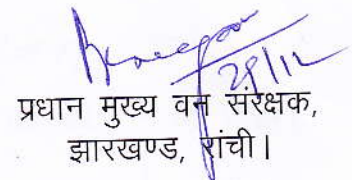 29/12
प्रधान मुख्य वन संरक्षक,
झारखण्ड, रांची।